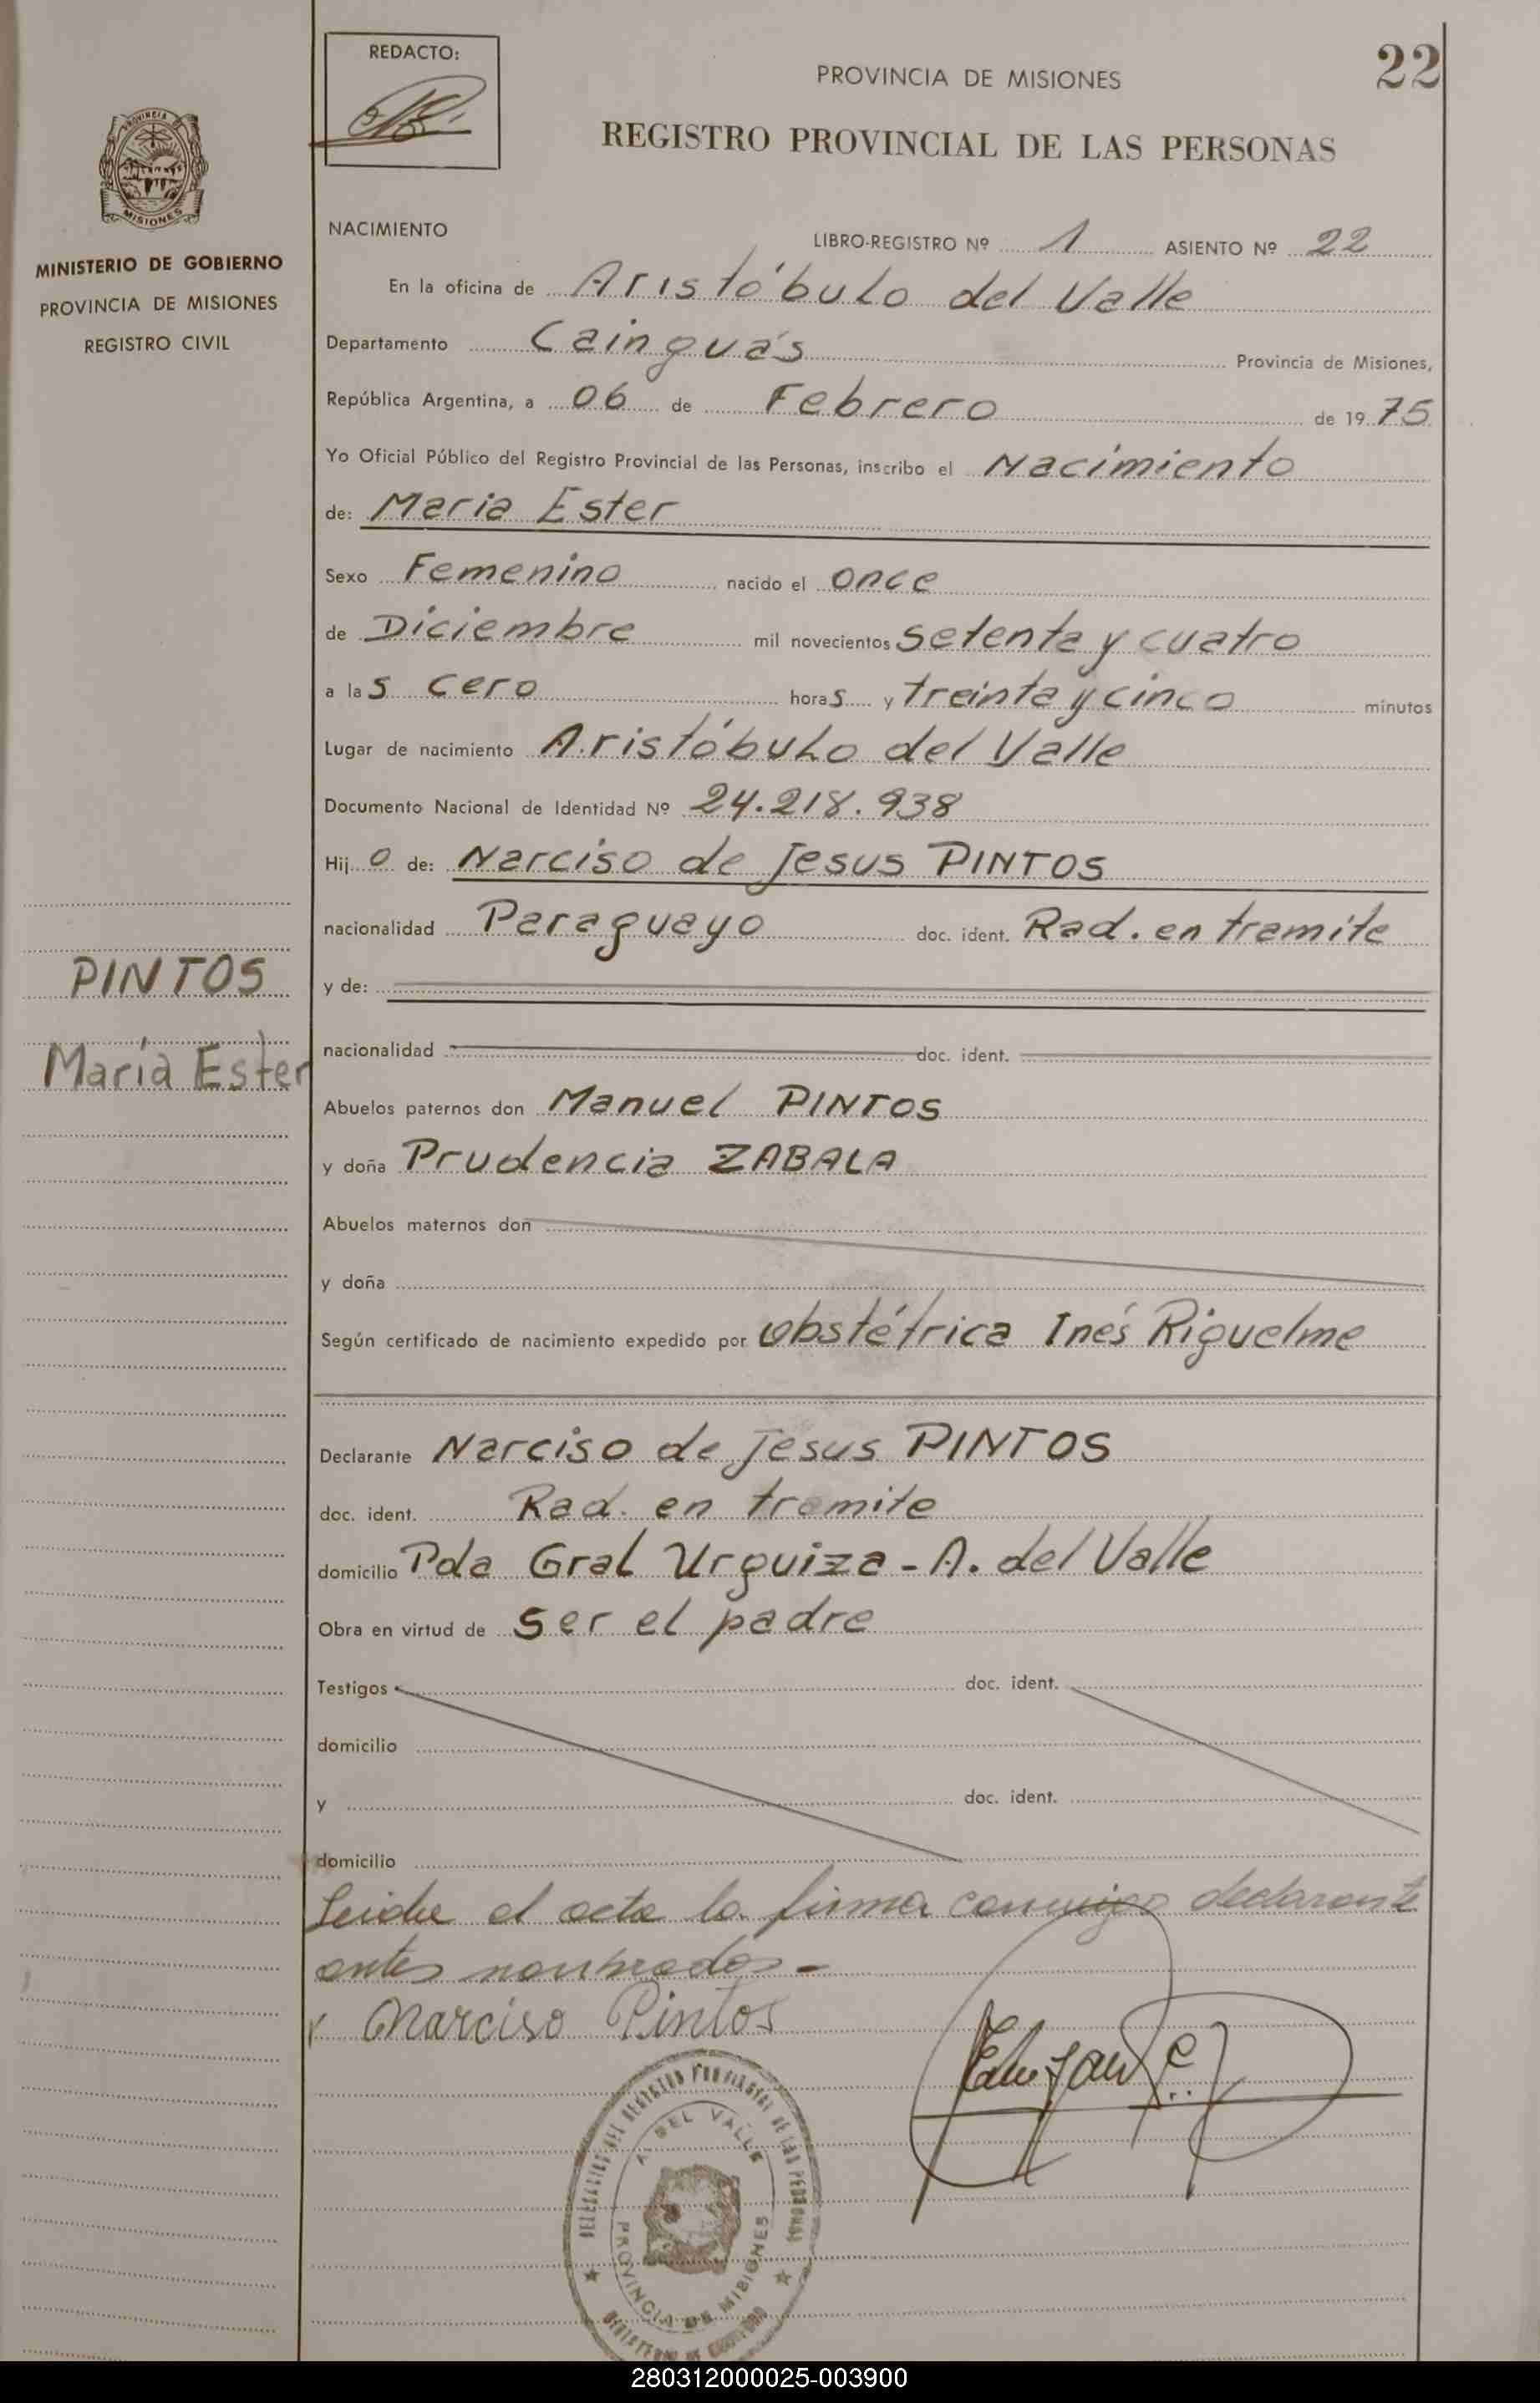 REDACTO:
PROVINCIA DE MISIONES
22
REGISTRO PROVINCIAL DE LAS PERSONAS
PROVINCIA
MISIONES
MINISTERIO DE GOBIERNO
PROVINCIA DE MISIONES
REGISTRO CIVIL
NACIMIENTO
LIBRO-REGISTRO Nº 1 ASIENTO Nº 22
En la oficina de Aristóbulo del Valle
Departamento Cainguás Provincia de Misiones,
República Argentina, a 06 de Febrero de 1975
Yo Oficial Público del Registro Provincial de las Personas, inscribo el Nacimiento
de: Maria Ester
Sexo Femenino nacido el once
de Diciembre mil novecientos setenta y cuatro
a las cero horas y treinta y cinco minutos
Lugar de nacimiento Aristóbulo del Valle
Documento Nacional de Identidad Nº 24.218.938
Hijo de: Narciso de Jesus PINTOS
nacionalidad Paraguayo doc. ident. Rad. en tramite
y de:
PINTOS
María Ester
nacionalidad doc. ident.
Abuelos paternos don Manuel PINTOS
y doña Prudencia ZABALA
Abuelos maternos don
y doña
Según certificado de nacimiento expedido por obstétrica Inés Riquelme
Declarante Narciso de Jesus PINTOS
doc. ident. Rad. en tramite
domicilio Pda Gral Urquiza - A. del Valle
Obra en virtud de ser el padre
Testigos doc. ident.
domicilio
y doc. ident.
domicilio
Leida el acta la firma conmigo declarante
antes nombrados.-
Narciso Pintos
DELEGACION DEL REGISTRO PROVINCIAL DE LAS PERSONAS
A. DEL VALLE
PROVINCIA DE MISIONES
MINISTERIO DE GOBIERNO
280312000025-003900